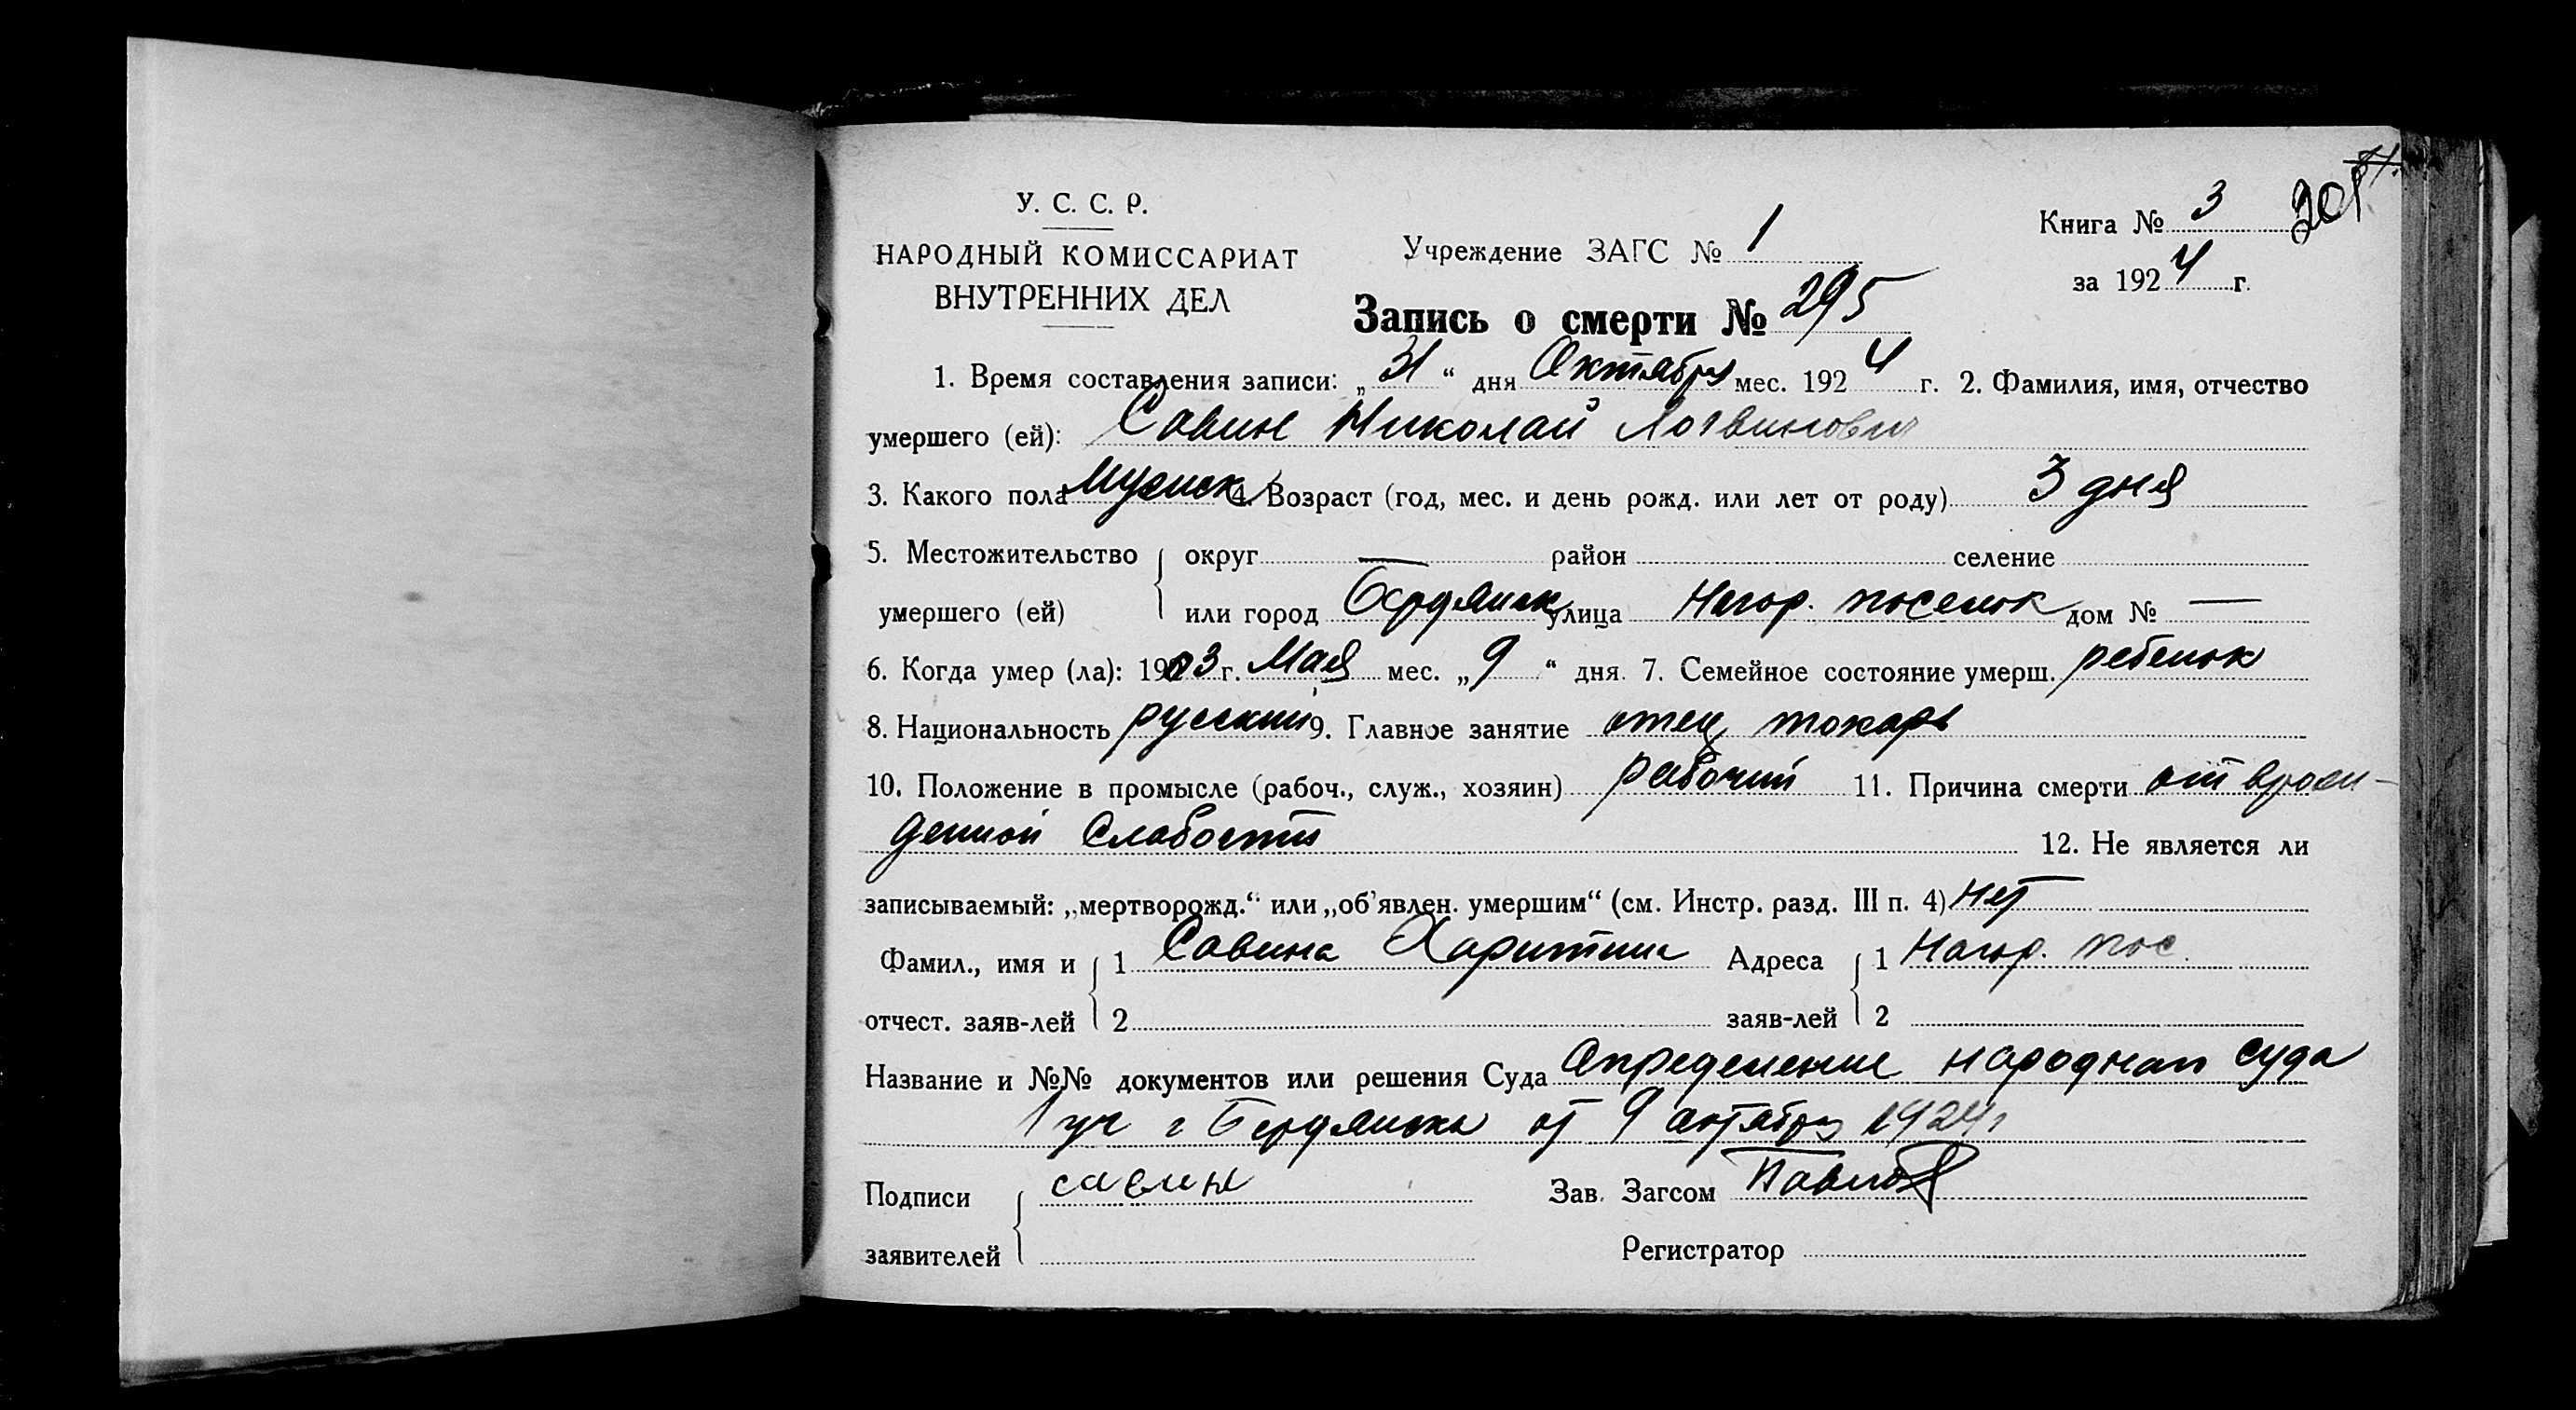 У. С. С. Р.
НАРОДНЫЙ КОМИССАРИАТ
ВНУТРЕННИХ ДЕЛ
Учреждение ЗАГС № 1
Книга № 3 201
за 1924 г.
Запись о смерти № 295
1. Время составления записи: „31“ дня Октября мес. 1924 г. 2. Фамилия, имя, отчество
умершего (ей): Савин Николай Логвинович
3. Какого пола Мужск 4. Возраст (год, мес. и день рожд. или лет от роду) 3 дня
5. Местожительство округ — район селение
умершего (ей) или город Бердянск улица Нагор. поселок дом № —
6. Когда умер (ла): 1903 г. Мая мес. „9“ дня. 7. Семейное состояние умерш. ребенок
8. Национальность русский 9. Главное занятие отец токарь
10. Положение в промысле (рабоч., служ., хозяин) рабочий 11. Причина смерти от врож-
денной слабости 12. Не является ли
записываемый: „мертворожд.“ или „об’явлен. умершим“ (см. Инстр. разд. III п. 4) нет
Фамил., имя и 1 Савина Харитина Адреса 1 Нагор. пос.
отчест. заяв-лей 2 заяв-лей 2
Название и №№ документов или решения Суда Определение народнаго суда
1 уч г Бердянска от 9 октября 1924 г
Подписи савин Зав. Загсом Павлов
заявителей Регистратор